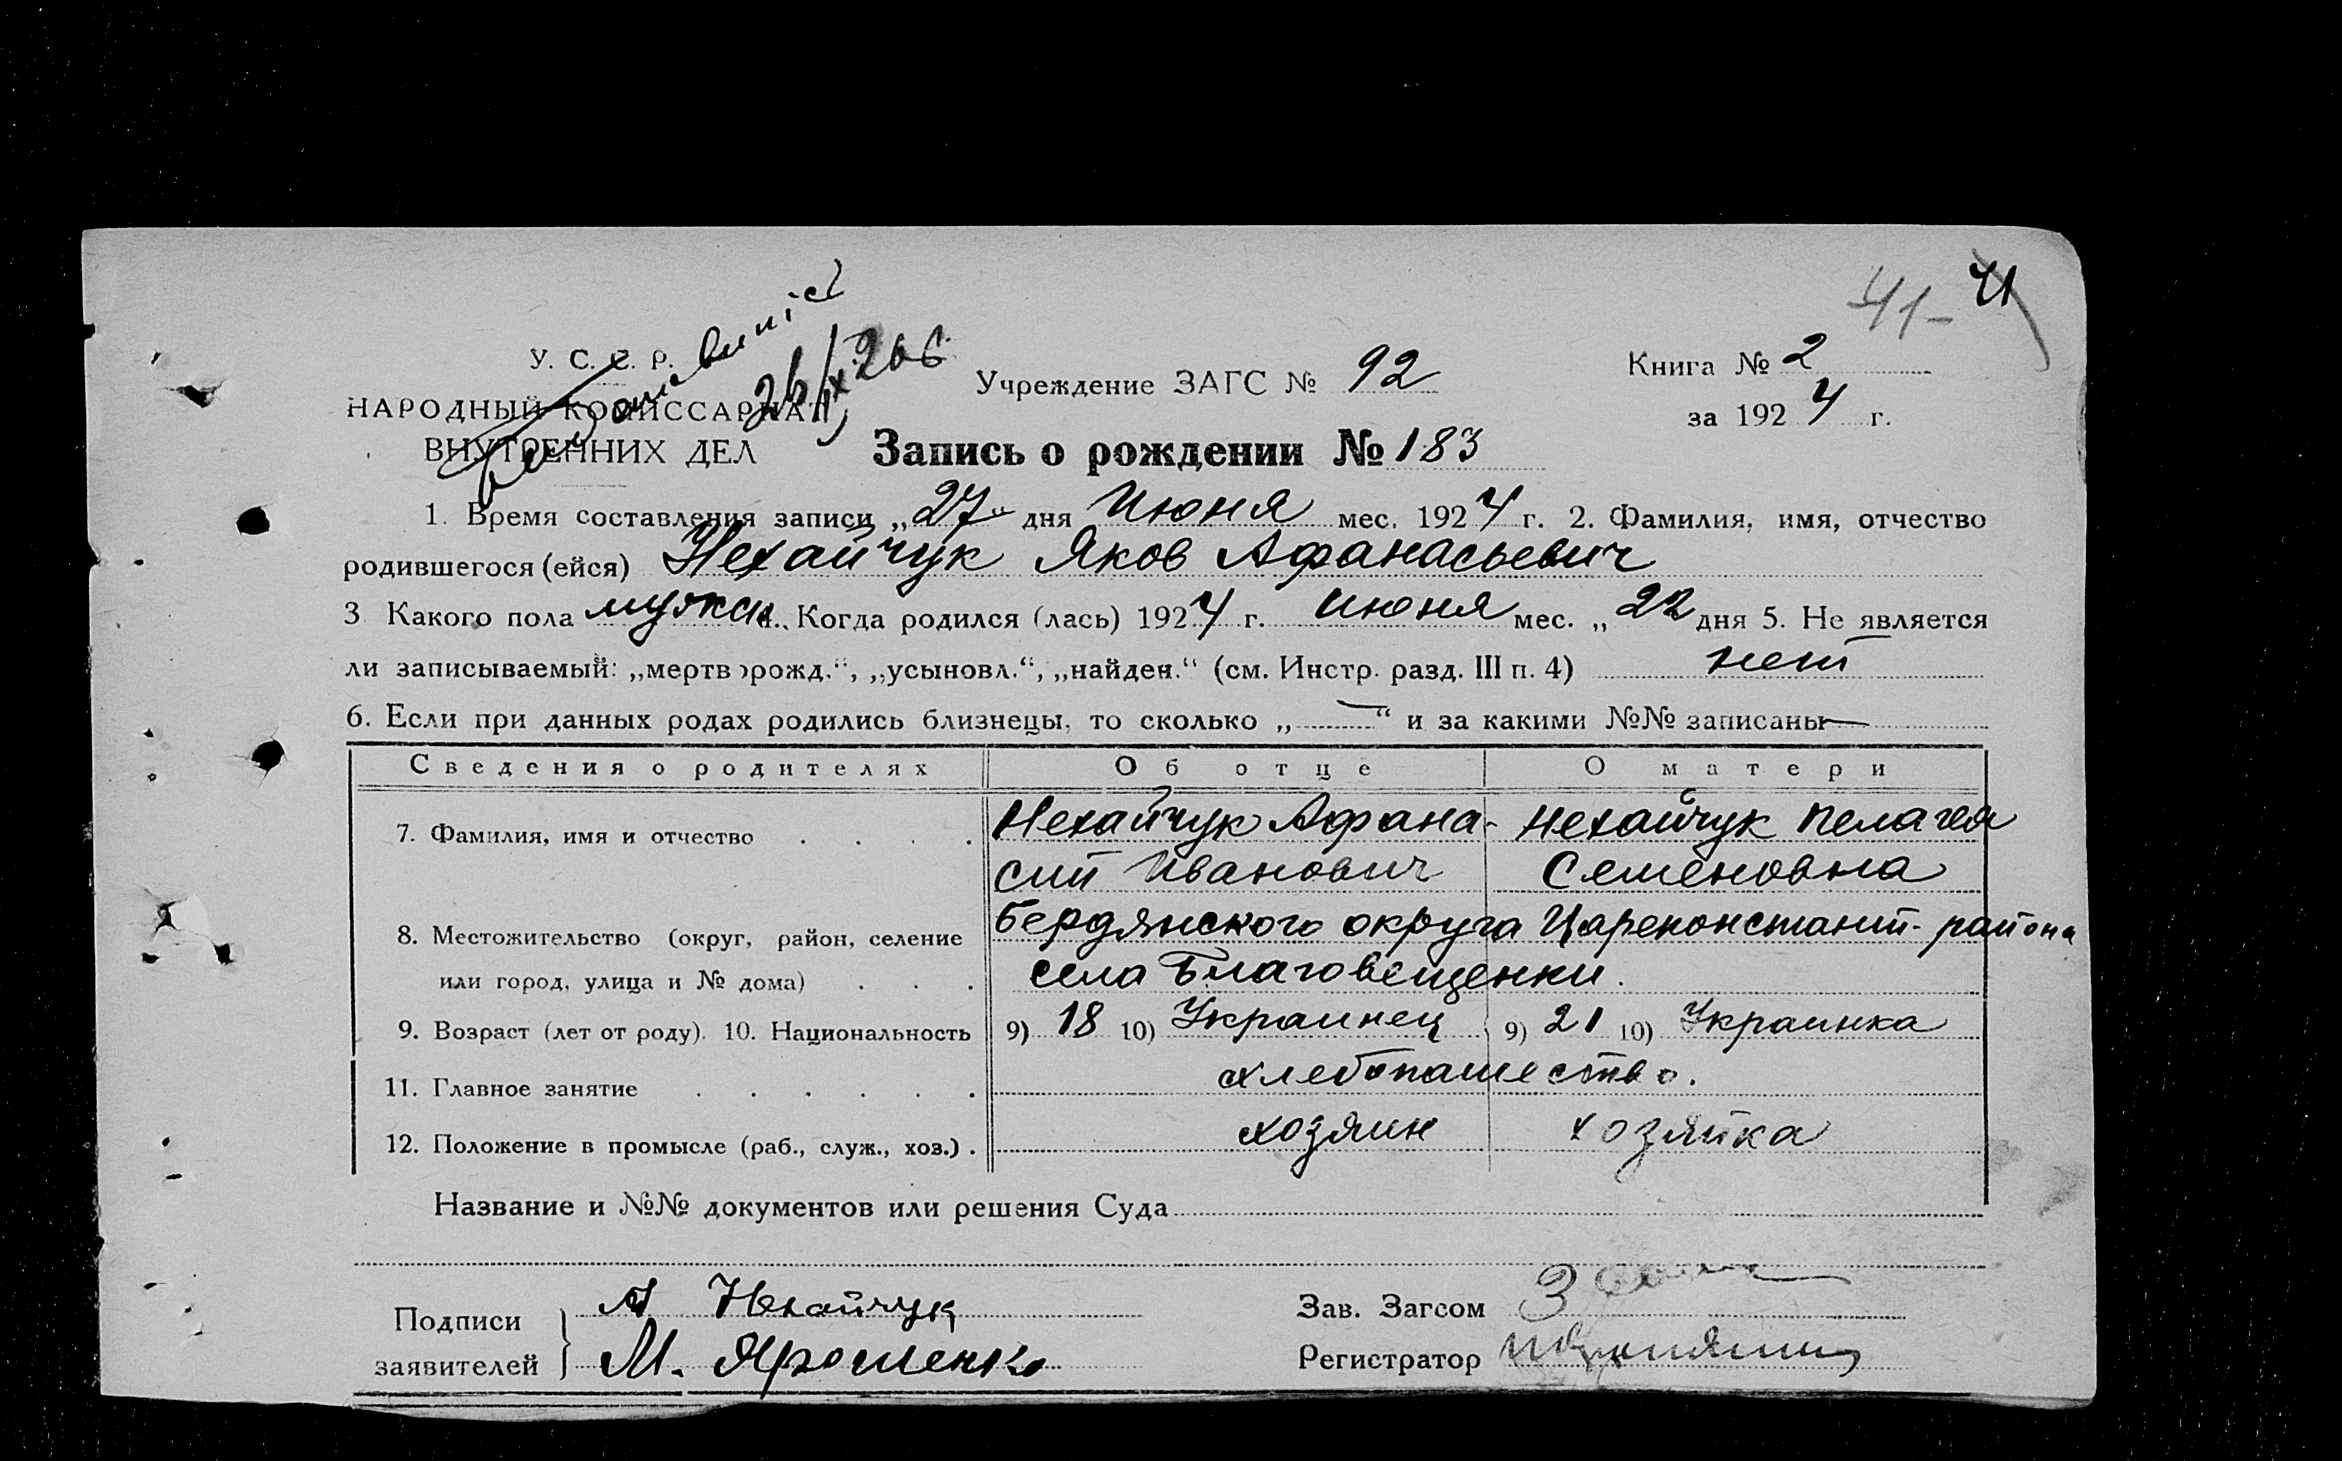 41- 41
У. С. С. Р.
НАРОДНЫЙ КОМИССАРИАТ
ВНУТРЕННИХ ДЕЛ
Учреждение ЗАГС № 92
Книга № 2
за 1924 г.
Запись о рождении № 183
1. Время составления записи „27“ дня Июня мес. 1924 г. 2. Фамилия, имя, отчество
родившегося (ейся) Нехайчук Яков Афанасьевич
3 Какого пола мужск 4. Когда родился (лась) 1924 г. июня мес. „22 дня 5. Не является
ли записываемый: „мертворожд.“, „усыновл.“, „найден.“ (см. Инстр. разд. III п. 4) нет
6. Если при данных родах родились близнецы, то сколько „—“ и за какими №№ записаны —
Сведения о родителях Об отце О матери
7. Фамилия, имя и отчество . . . . Нехайчук Афана- Нехайчук Пелагея
сий Иванович Семеновна
8. Местожительство (округ, район, селение Бердянского округа Цареконстант. района
или город, улица и № дома) . . . села Благовещенки.
9. Возраст (лет от роду). 10. Национальность 9) 18 10) Украинец 9) 21 10) Украинка
11. Главное занятие . . . . . . хлебопашество.
12. Положение в промысле (раб., служ., хоз.) . хозяин хозяйка
Название и №№ документов или решения Суда
Подписи заявителей } А Нехайчук
М. Ярошенко
Зав. Загсом
Регистратор